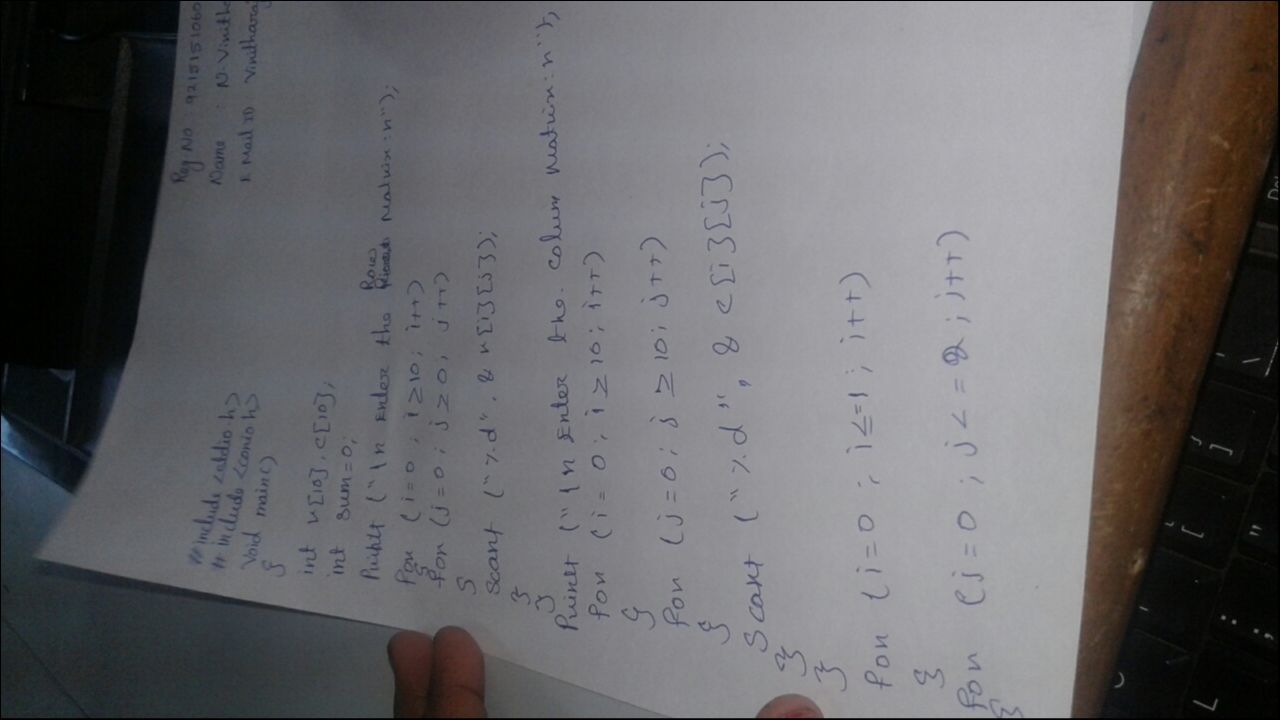 Reg No : 9215151060
Name : N. Vinitha
E Mail ID Vinitharaj
# include <stdio.h>
# include <conio.h>
Void main()
{
int r[10], c[10];
int sum=0;
Printf ("\n Enter the Row Matrix:n");
for (i=0; i≥10; i++)
{
for (j=0; j≥0; j++)
{
Scanf ("%d", & r[i][j]);
}
}
Printf ("\n Enter the colum Matrix:n");
for (i=0; i≥10; i++)
{
for (j=0; j≥10; j++)
{
Scanf ("%d", & c[i][j]);
}
}
for (i=0; i<=1; i++)
{
for (j=0; j<=2; j++)
{